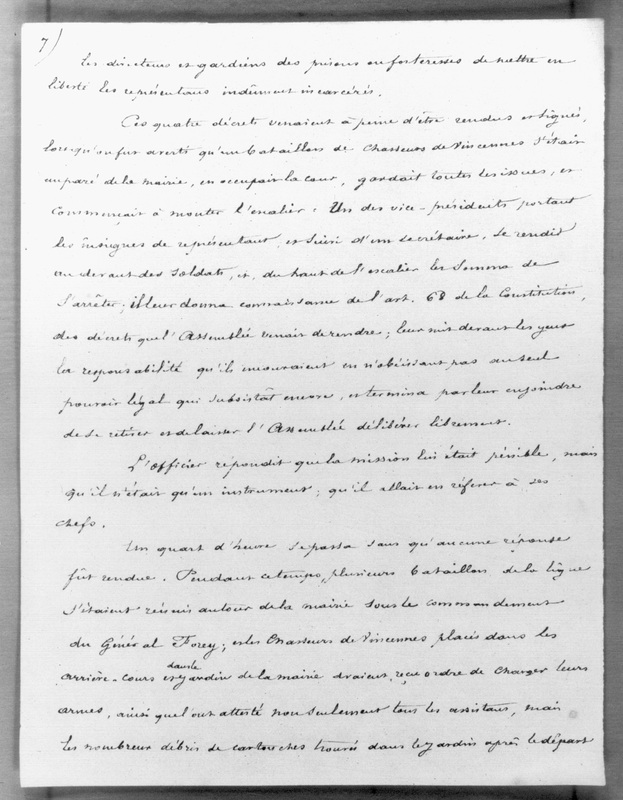 7)
les directeurs et gardiens des prisons ou forteresses de mettre en
liberté les représentans indûment incarcérés.
Ces quatre décrets venaient à peine d'être rendus et signés,
lorsqu'on fut averti qu'un bataillon de Chasseurs de Vincennes s'était
emparé de la mairie, en occupait la cour, gardait toutes les issues, et
commençait à monter l'escalier. Un des vice-présidents portant
les insignes de représentant, et suivi d'un secrétaire, se rendit
au devant des soldats, et, du haut de l'escalier les somma de
s'arrêter; il leur donna connaissance de l'art. 68 de la Constitution,
des décrets que l'Assemblée venait de rendre; leur mit devant les yeux
la responsabilité qu'ils encouraient en n'obéissant pas au seul
pouvoir légal qui subsistât encore, et termina par leur enjoindre
de se retirer et de laisser l'Assemblée délibérer librement.
L'officier répondit que la mission lui était pénible, mais
qu'il n'était qu'un instrument; qu'il allait en référer à ses
chefs.
Un quart d'heure se passa sans qu'aucune réponse
fût rendue. Pendant ce temps, plusieurs bataillons de la ligne
s'étaient réunis autour de la mairie sous le commandement
du Général Forey; et les Chasseurs de Vincennes placés dans les
arrière-cours et dans le jardin de la mairie avaient reçu ordre de charger leurs
armes, ainsi que l'ont attesté non seulement tous les assistans, mais
les nombreux débris de cartouches trouvés dans le jardin après le départ